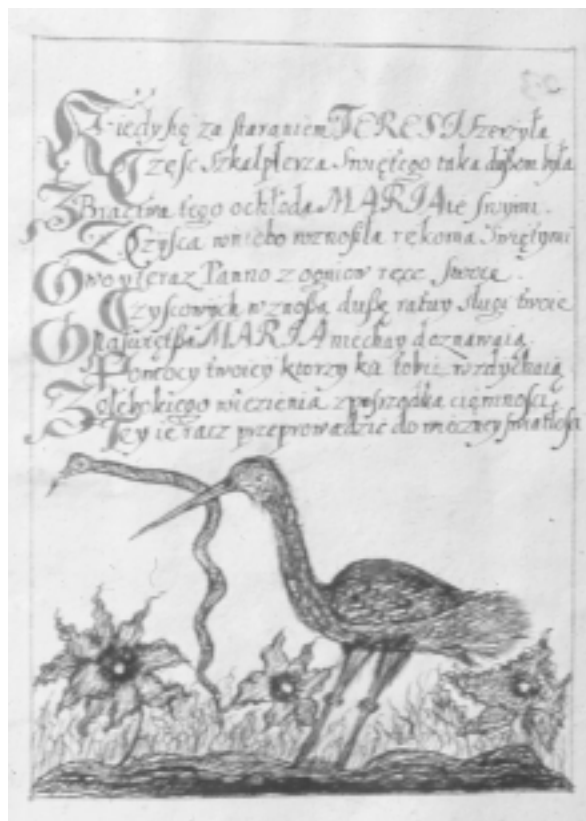 Kiedy się za staraniem TERESI szerzyła
Cześć Szkaplerza Swiętego taka duszom była
Z Bractwa tego ochłoda MARIA ie swymi
Z Czysca w niebo wznosiła rękoma Swiętymi
Owo y teraz Panno z ogniow ręce swoie
Czyscowych wznoszą duszę ratuy sługi twoie
MARIA niechay doznawaią
Pomocy twoiey ktorzy ku tobie wzdychaią
Z głębokiego więzienia z posrzodka ciemności
Ty ie racz przeprowadzić do światłości